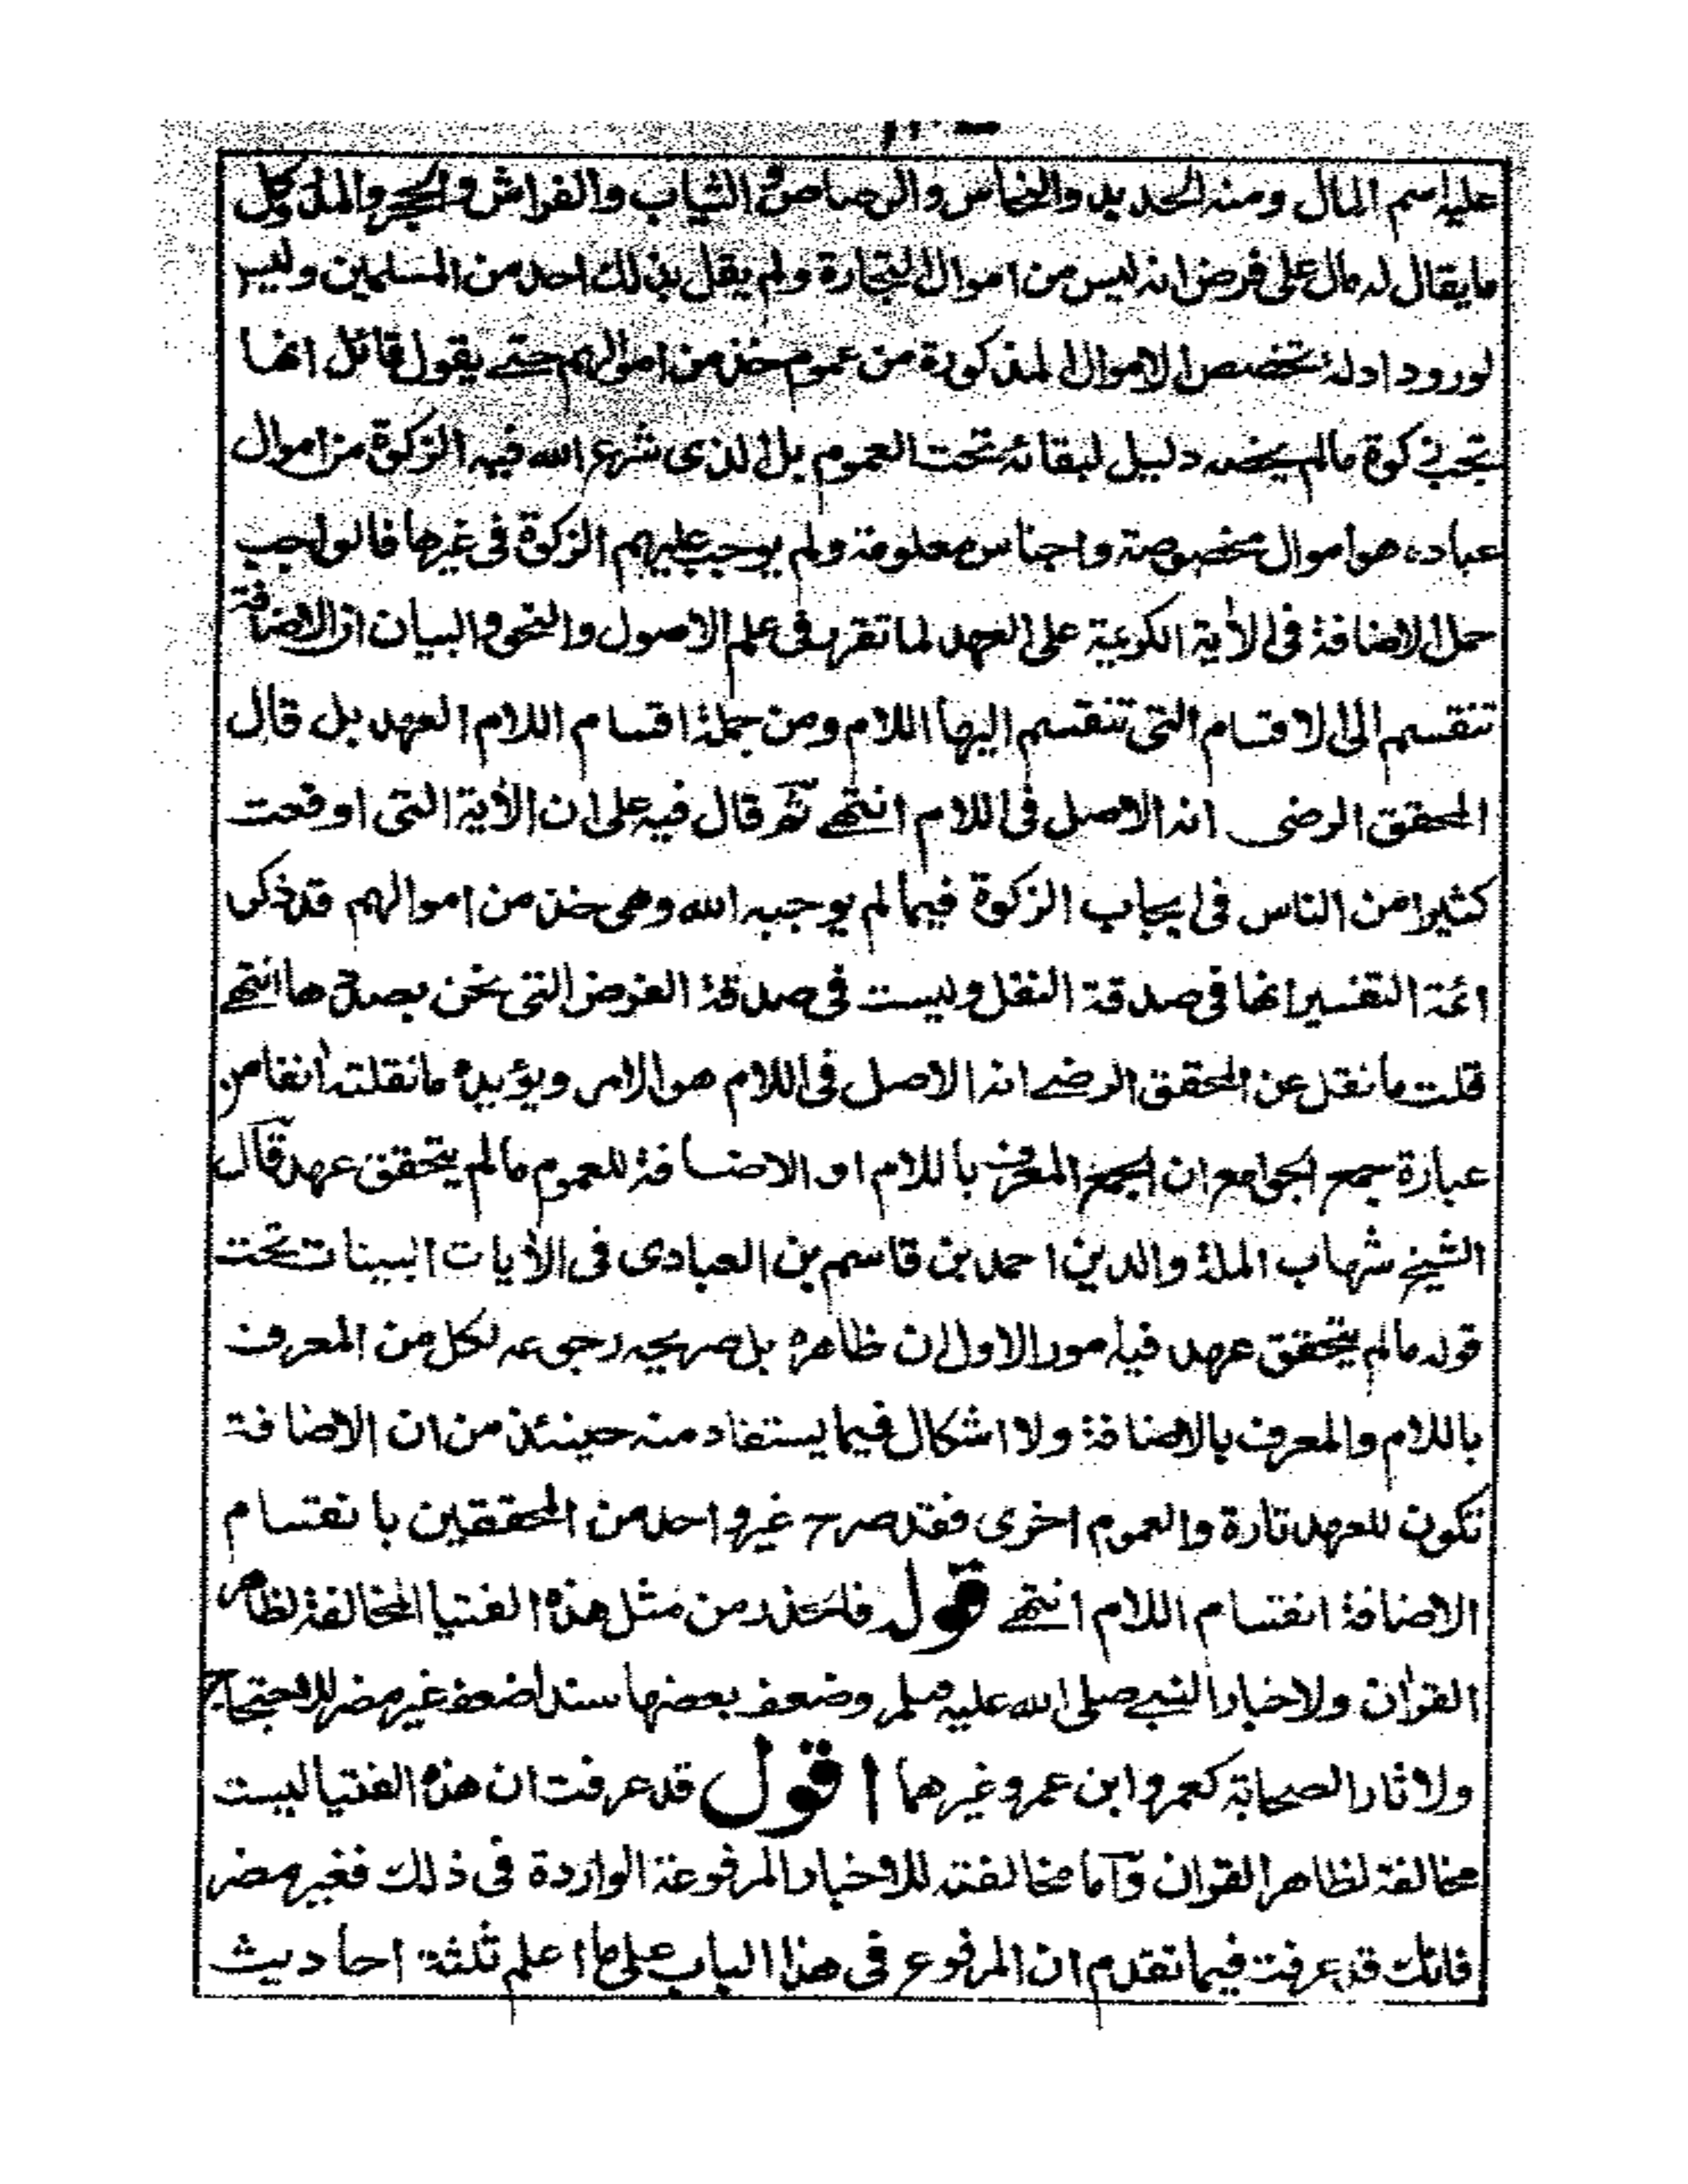 عليه اسم المال ومنه الحديد والنحاس والرصاص والثياب والفراش والحجر والمدر وكل
ما يقال له مال على فرض انه ليس من اموال التجارة ولم يقل بذلك احد من المسلمين وليس
لورود ادلة تخصص الاموال المذكورة من عموم خذ من اموالهم حتى يقول قائل انها
تجب زكوة مالم يخصه دليل لبقائه تحت العموم بل الذى شرع الله فيه الزكوة من اموال
عباده هو اموال مخصوصة واجناس معلومة ولم يوجب عليهم الزكوة فى غيرها فالواجب
حمل الاضافة فى الأية الكريمة على العهد لما تقرر فى علم الاصول والنحو والبيان ان الاضافة
تنقسم الى الاقسام التى تنقسم اليها اللام ومن جملة اقسام اللام العهد بل قال
المحقق الرضى انه الاصل فى اللام انتهى ثم قال فيه على ان الأية التى اوقعت
كثيرا من الناس فى ايجاب الزكوة فيما لم يوجبه الله وهى خذ من اموالهم قد ذكر
ائمة التفسير انها فى صدقة النفل وليست فى صدقة الفرض التى نحن بصددها انتهى
قلت ما نقل عن المحقق الرضى انه الاصل فى اللام هو الامر ويؤيده ما نقلته أنفا من
عبارة جمع الجوامع ان الجمع المعرف باللام او الاضافة للعموم مالم يتحقق عهد قال
الشيخ شهاب الملة والدين احمد بن قاسم بن العبادى فى الأيات البينات تحت
قوله مالم يتحقق عهد فيه امور الاول ان ظاهره بل صريحه رجوعه لكل من المعرف
باللام والمعرف بالاضافة ولا اشكال فيما يستفاد منه حينئذ من ان الاضافة
تكون للعهد تارة والعموم اخرى فقد صرح غير واحد من المحققين بانقسام
الاضافة انقسام اللام انتهى قوله فلتحذر من مثل هذه الفتيا المخالفة لظاهر
القرأن ولاخبار النبى صلى الله عليه وسلم وضعف بعضها سندا ضعف غير مضر للاحتجاج
ولاثار الصحابة كعمر وابن عمر وغيرهما اقول قد عرفت ان هذه الفتيا ليست
مخالفة لظاهر القرأن وأما مخالفته للاخبار المرفوعة الواردة فى ذلك فغير مضر
فانك قد عرفت فيما تقدم ان المرفوع فى هذا الباب على ما اعلم ثلثة احاديث